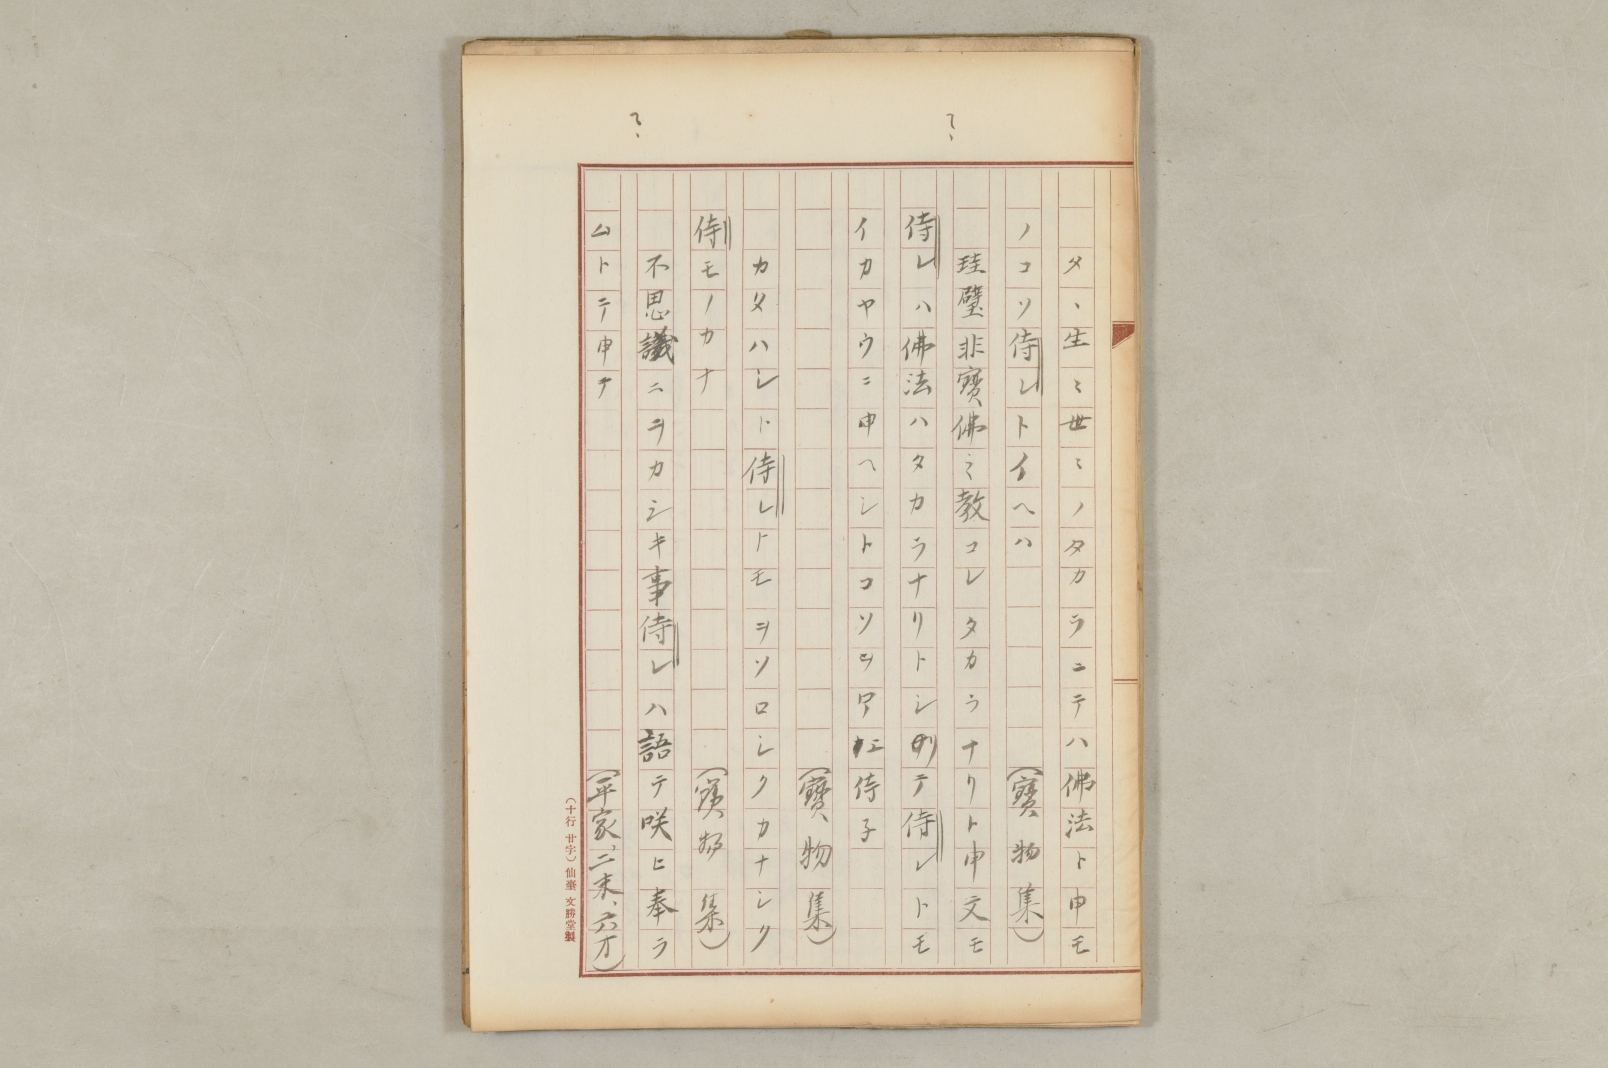 タヽ生〻世〻ノタカラニテハ佛法ト申モ
ノコソ侍レトイヘハ（寶物集）
珪璧非寶佛〻教コレタカラナリト申文モ
侍レハ佛法ハタカラナリトシ テ侍レトモ
イカヤウニ申ヘシトコソ 侍子
（寶物集）
カタハレト侍レトモヲソロシクカナシク
侍モノカナ（寶物集）
不思議ニヲカシキ事侍レハ語テ咲ヒ奉ラ
ムトテ申テ（平家、二末、六オ）
（十行 廿字）仙臺 文勝堂製